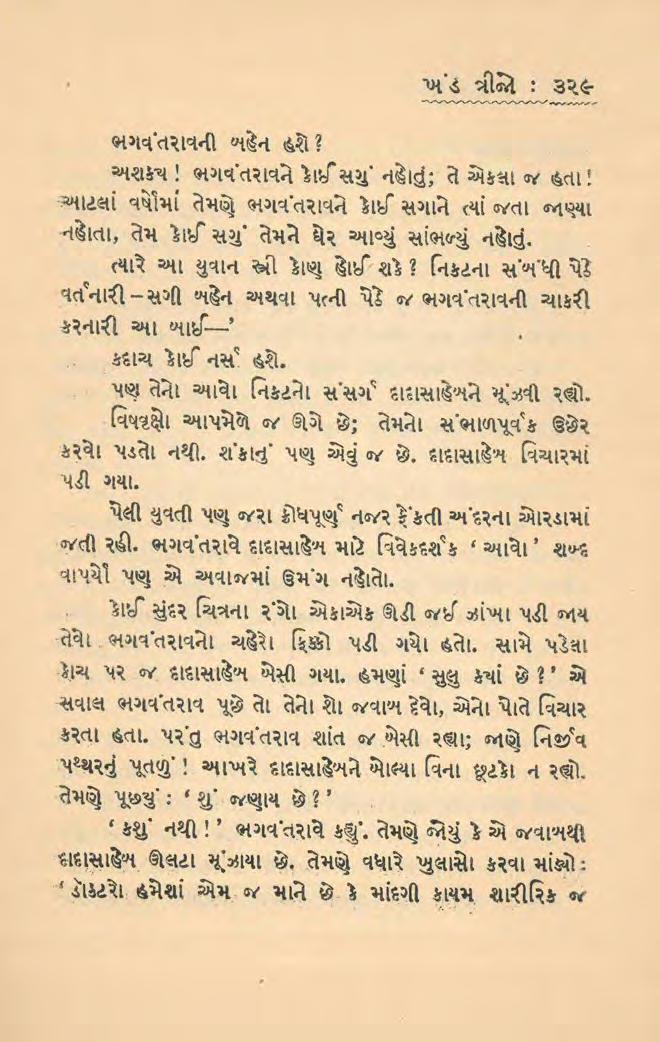 ખંડ ત્રીજો : ૩૨૯
ભગવંતરાવની બહેન હશે ?
અશક્ય ! ભગવંતરાવને કોઈ સગું નહોતું; તે એકલા જ હતા !
આટલાં વર્ષોમાં તેમણે ભગવંતરાવને કોઈ સગાને ત્યાં જતા જાણ્યા
નહોતા, તેમ કોઈ સગું તેમને ઘેર આવ્યું સાંભળ્યું નહોતું.
ત્યારે આ યુવાન સ્ત્રી કોણ હોઈ શકે ? નિકટના સંબંધી પેઠે
વર્તનારી – સગી બહેન અથવા પત્ની પેઠે જ ભગવંતરાવની ચાકરી
કરનારી આ બાઈ—’
કદાચ કોઈ નર્સ હશે.
પણ તેનો આવો નિકટનો સંસર્ગ દાદાસાહેબને મૂંઝવી રહ્યો.
વિષવૃક્ષો આપમેળે જ ઊગે છે; તેમનો સંભાળપૂર્વક ઉછેર
કરવો પડતો નથી. શંકાનું પણ એવું જ છે. દાદાસાહેબ વિચારમાં
પડી ગયા.
પેલી યુવતી પણ જરા ક્રોધપૂર્ણ નજર ફેંકતી અંદરના ઓરડામાં
જતી રહી. ભગવંતરાવે દાદાસાહેબ માટે વિવેકદર્શક ‘ આવો ’ શબ્દ
વાપર્યો પણ એ અવાજમાં ઉમંગ નહોતો.
કોઈ સુંદર ચિત્રના રંગો એકાએક ઊડી જઈ ઝાંખા પડી જાય
તેવો ભગવંતરાવનો ચહેરો ફિક્કો પડી ગયો હતો. સામે પડેલા
કોચ પર જ દાદાસાહેબ બેસી ગયા. હમણાં ‘ સુલુ ક્યાં છે ? ’ એ
સવાલ ભગવંતરાવ પૂછે તો તેનો શો જવાબ દેવો, એનો પોતે વિચાર
કરતા હતા. પરંતુ ભગવંતરાવ શાંત જ બેસી રહ્યા; જાણે નિર્જીવ
પથ્થરનું પૂતળું ! આખરે દાદાસાહેબને બોલ્યા વિના છૂટકો ન રહ્યો.
તેમણે પૂછ્યું : ‘ શું જણાય છે ? ’
‘ કશું નથી ! ’ ભગવંતરાવે કહ્યું. તેમણે જોયું કે એ જવાબથી
દાદાસાહેબ ઊલટા મૂંઝાયા છે. તેમણે વધારે ખુલાસો કરવા માંડ્યો :
‘ ડૉક્ટરો હમેશાં એમ જ માને છે કે માંદગી કાયમ શારીરિક જ